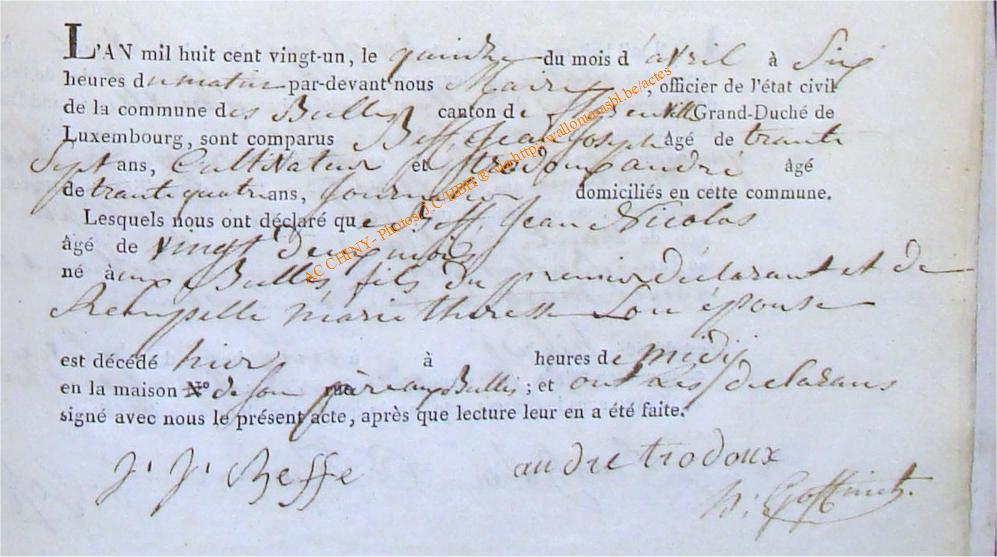 L'AN mil huit cent vingt-un, le quinze du mois d'avril à Six
heures du matin par-devant nous Maire, officier de l'état civil
de la commune des Bulles canton de Grand-Duché de
Luxembourg, sont comparus Beff, Jean Joseph âgé de trante
Sept ans, Cultivateur et trodoux andre âgé
de trante quatre ans, journalier domiciliés en cette commune.
Lesquels nous ont déclaré que Beff, Jean Nicolas
âgé de vingt Deux mois
né à aux Bulles fils du premier declarant et de
marie therese Son épouse
est décédé hier à heures de midij
en la maison N° de son père aux Bulles ; et ont Les declarans
signé avec nous le présent acte, après que lecture leur en a été faite.
J. J. Beffe
andre trodoux
Goffinet.
AC CHINY - Photos J.C HIBR ® - http://walloniensbl.be/actes